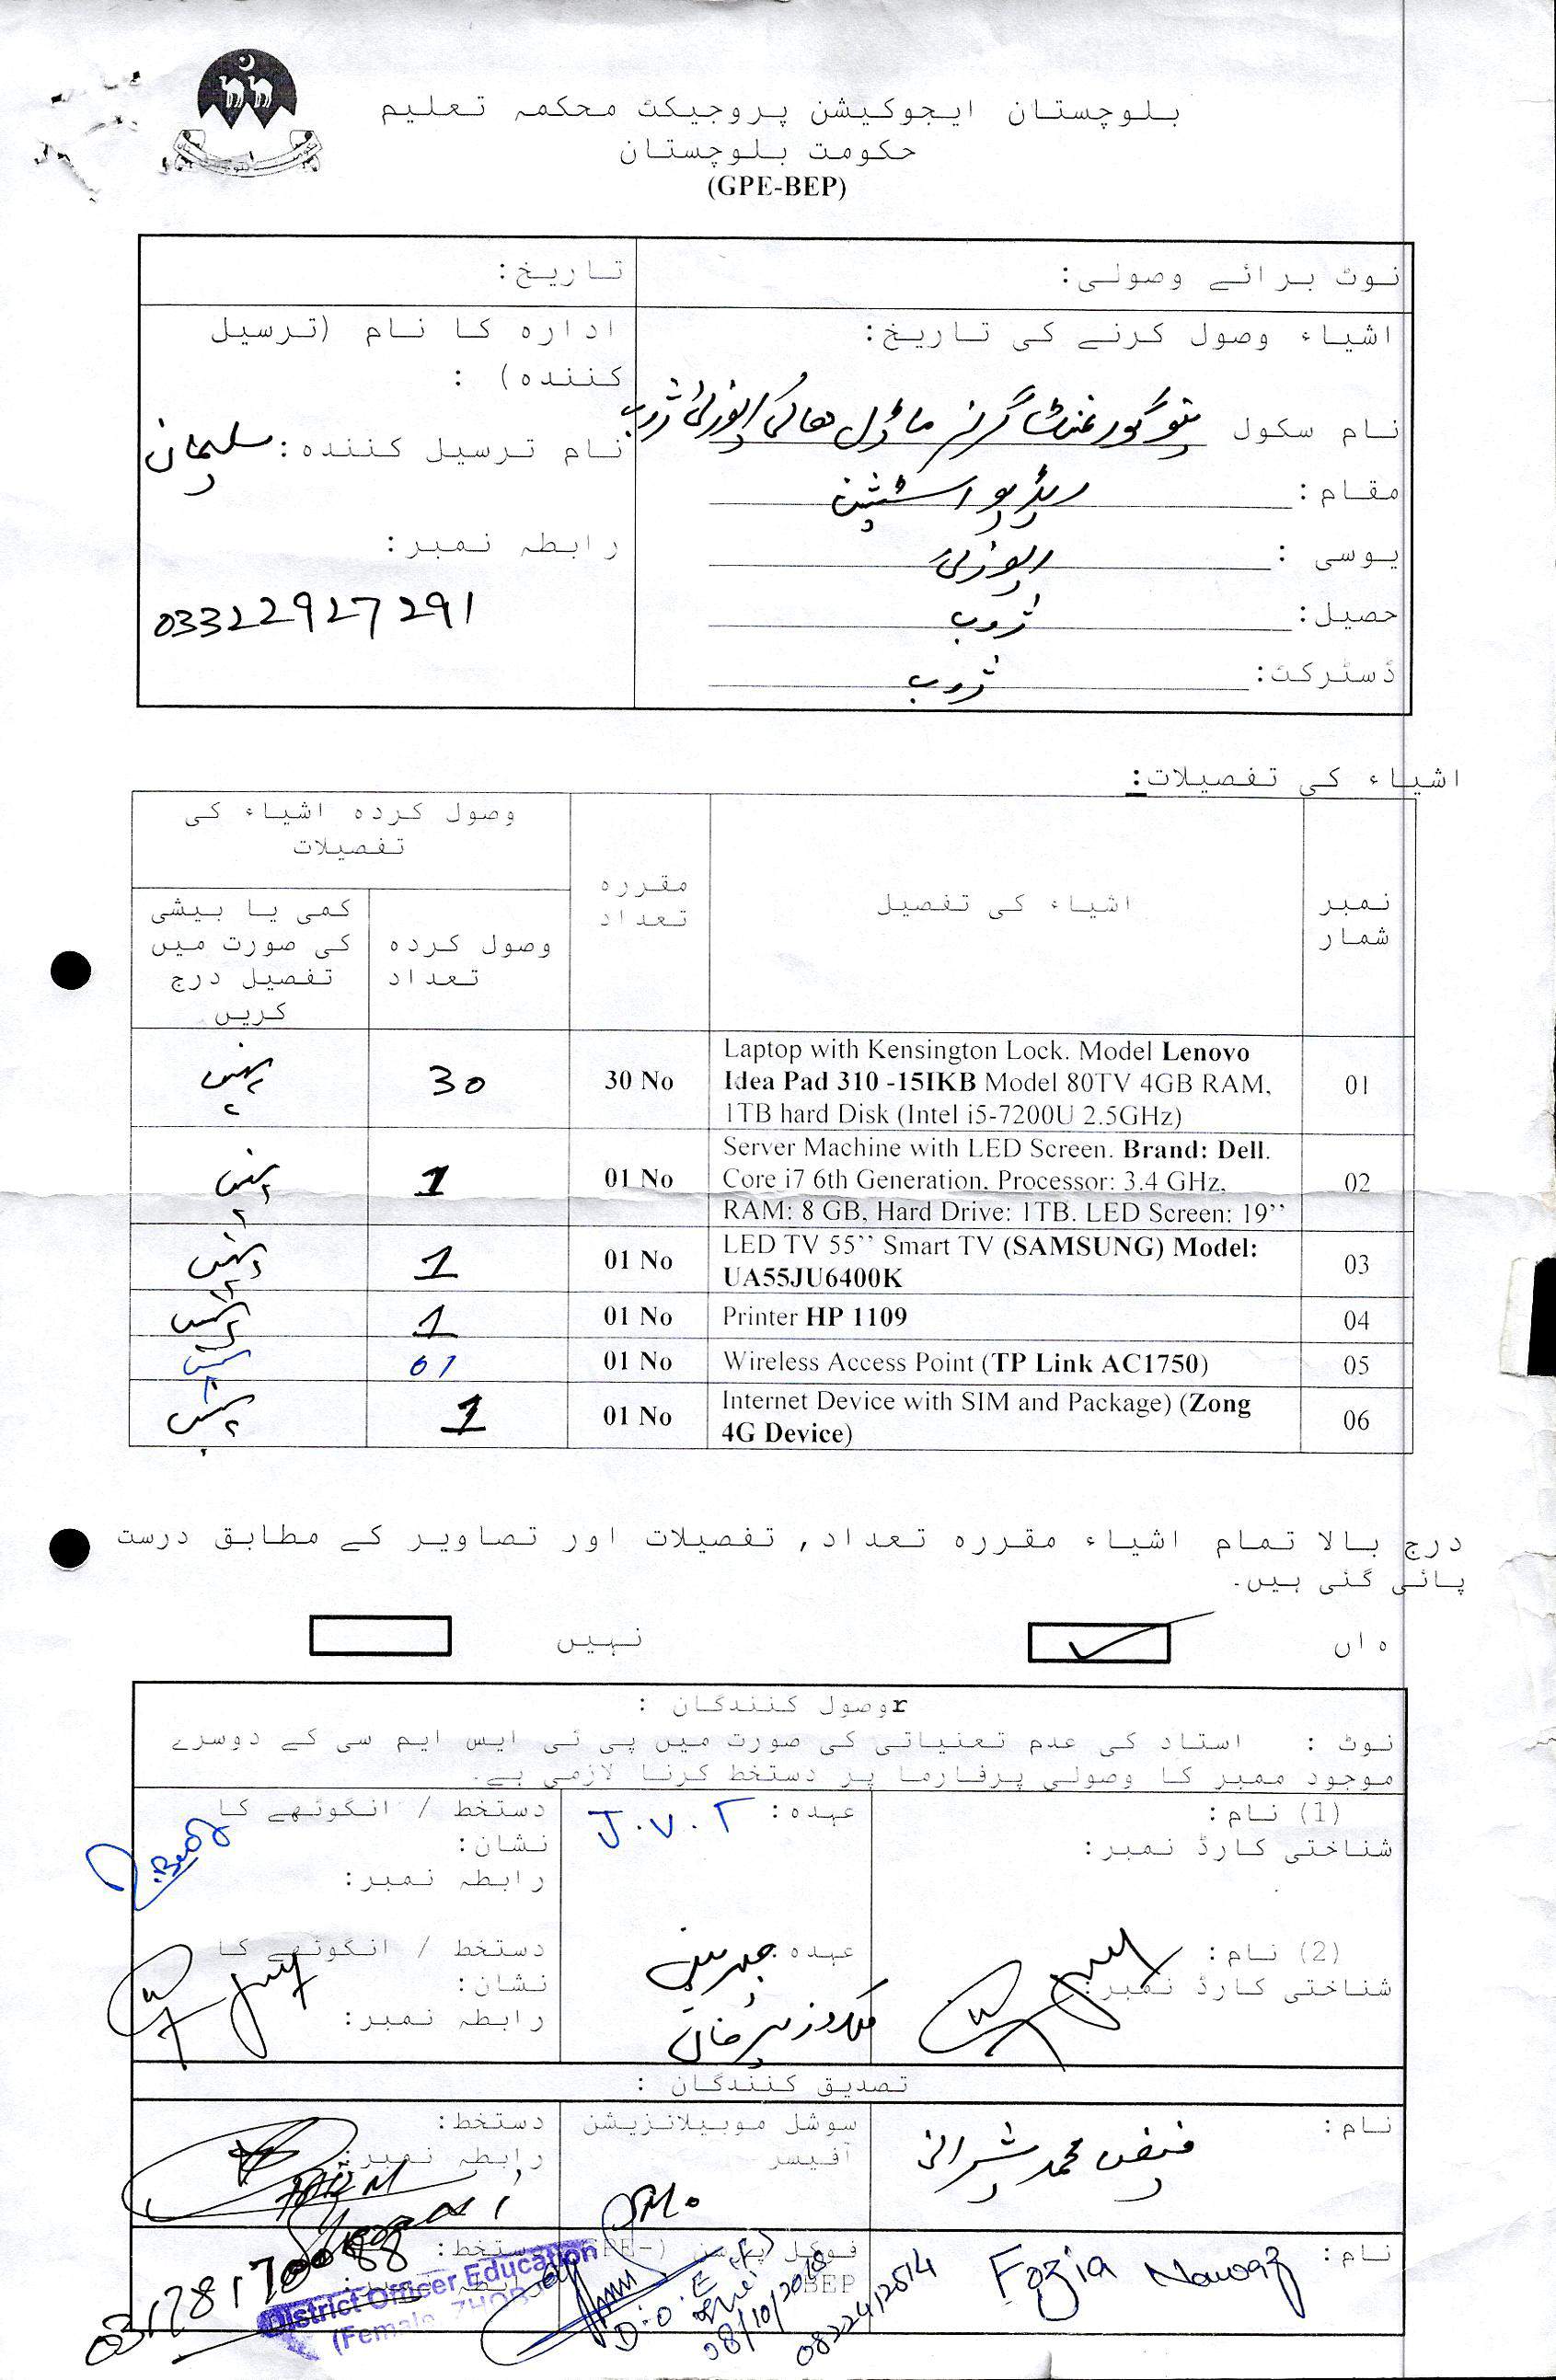 بلوچستان ایجوکیشن پروجیکٹ محکمہ تعلیم
حکومت بلوچستان
(GPE-BEP)
نوٹ برائے وصولی:
تاریخ:
اشیاء وصول کرنے کی تاریخ:
ادارہ کا نام (ترسیل کنندہ) :
نام سکول گورنمنٹ گرلز ماڈل ہائی ژوب
نام ترسیل کنندہ: سلیمان
مقام: ریڈیو اسٹیشن
رابطہ نمبر:
یوسی :
03322927291
حصیل: ژوب
ڈسٹرکٹ: ژوب
اشیاء کی تفصیلات:
نمبر شمار
اشیاء کی تفصیل
مقررہ تعداد
وصول کردہ اشیاء کی تفصیلات
وصول کردہ تعداد
کمی یا بیشی کی صورت میں تفصیل درج کریں
01
Laptop with Kensington Lock. Model Lenovo
Idea Pad 310 -15IKB Model 80TV 4GB RAM,
1TB hard Disk (Intel i5-7200U 2.5GHz)
30 No
30
نہیں
02
Server Machine with LED Screen. Brand: Dell.
Core i7 6th Generation. Processor: 3.4 GHz,
RAM: 8 GB, Hard Drive: 1TB. LED Screen: 19’’
01 No
1
نہیں
03
LED TV 55’’ Smart TV (SAMSUNG) Model:
UA55JU6400K
01 No
1
نہیں
04
Printer HP 1109
01 No
1
نہیں
05
Wireless Access Point (TP Link AC1750)
01 No
01
نہیں
06
Internet Device with SIM and Package) (Zong
4G Device)
01 No
1
نہیں
درج بالا تمام اشیاء مقررہ تعداد, تفصیلات اور تصاویر کے مطابق درست
پائی گئی ہیں۔
ہاں
نہیں
rوصول کنندگان :
نوٹ : استاد کی عدم تعنیاتی کی صورت میں پی ٹی ایس ایم سی کے دوسرے
موجود ممبر کا وصولی پرفارما پر دستخط کرنا لازمی ہے۔
(1) نام:
شناختی کارڈ نمبر:
عہدہ: J.V.T
دستخط / انگوٹھے کا
نشان:
رابطہ نمبر:
(2) نام:
شناختی کارڈ نمبر:
عہدہ
دستخط / انگوٹھے کا
نشان:
رابطہ نمبر:
تصدیق کنندگان :
نام: فیض محمد شیرانی
سوشل موبیلائزیشن
آفیسر
دستخط:
رابطہ نمبر:
نام: Fozia Nawaz
فوکل پرسن (GPE-
BEP
دستخط:
D.O.E (F)
08/10/2018
0822412514
03178170088
District Officer Education
(Female) ZHOB